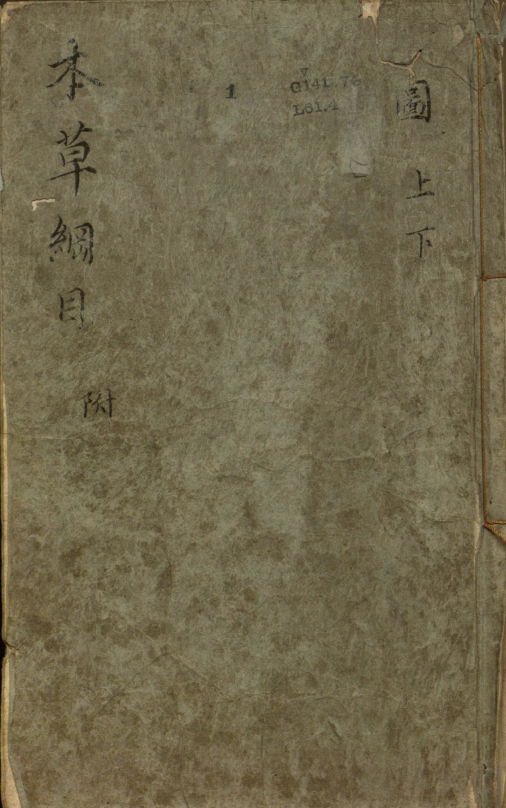 圖 上 下
1
G141.76
L61.4
本草綱目
附